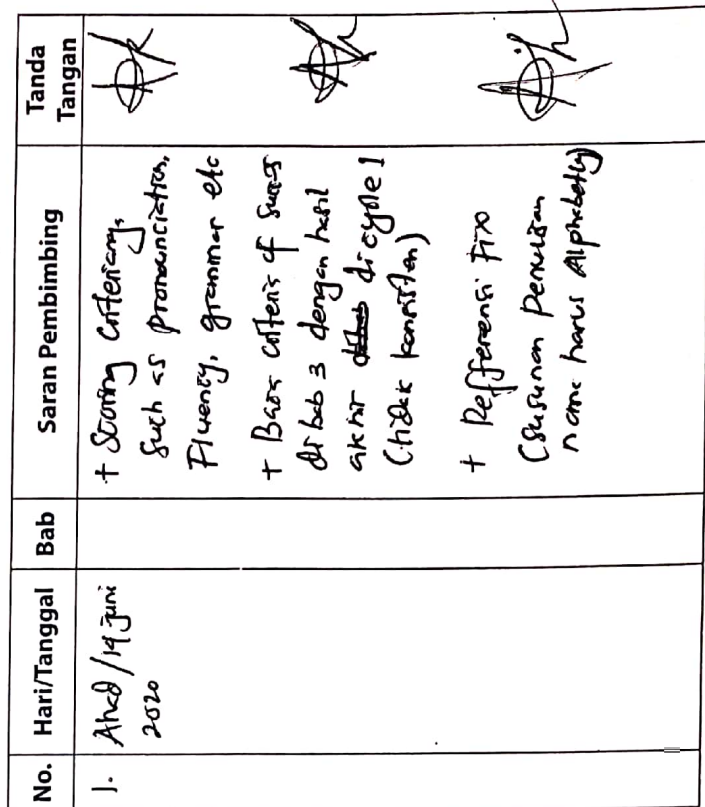 No. Hari/Tanggal Bab Saran Pembimbing Tanda Tangan
1. Ahad / 14 juni
2020
+ Scoring Criteriang,
Such as pronounciation,
Fluency, grammar etc
+ Baca criteria of Succes
di bab 3 dengan hasil
akhir di cycle 1
(tidak konsisten)
+ Refferensi Fixo
(Susunan penulisan
nama harus Alphabetly)